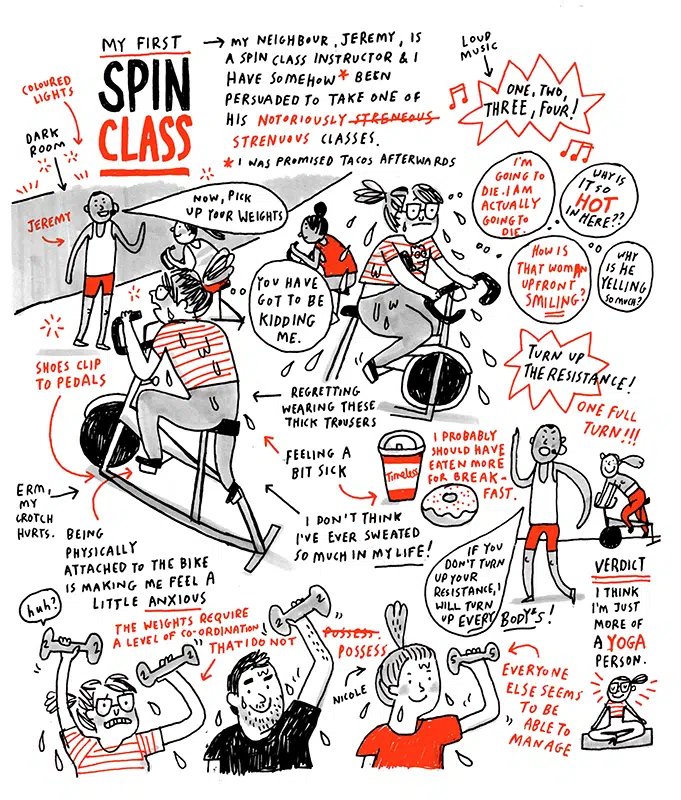 MY FIRST
SPIN
CLASS
→ MY NEIGHBOUR, JEREMY, IS
A SPIN CLASS INSTRUCTOR & I
HAVE SOMEHOW* BEEN
PERSUADED TO TAKE ONE OF
HIS NOTORIOUSLY STRENEOUS
STRENUOUS CLASSES.
* I WAS PROMISED TACOS AFTERWARDS
LOUD
MUSIC
ONE, TWO,
THREE, FOUR!
COLOURED
LIGHTS
DARK
ROOM
JEREMY
NOW, PICK
UP YOUR WEIGHTS
I'M
GOING TO
DIE. I AM
ACTUALLY
GOING TO
DIE.
WHY IS
IT SO
HOT
IN HERE??
HOW IS
THAT WOMAN
UPFRONT
SMILING?
WHY
IS HE
YELLING
SO MUCH?
YOU HAVE
GOT TO BE
KIDDING
ME.
TURN UP
THE RESISTANCE!
ONE FULL
TURN!!!
SHOES CLIP
TO PEDALS
REGRETTING
WEARING THESE
THICK TROUSERS
FEELING A
BIT SICK
Timeless
I PROBABLY
SHOULD HAVE
EATEN MORE
FOR BREAK-
FAST.
ERM,
MY
CROTCH
HURTS.
BEING
PHYSICALLY
ATTACHED TO THE BIKE
IS MAKING ME FEEL A
LITTLE ANXIOUS
I DON'T THINK
I'VE EVER SWEATED
SO MUCH IN MY LIFE!
IF YOU
DON'T TURN
UP YOUR
RESISTANCE, I
WILL TURN
UP EVERYBODY'S!
VERDICT
I THINK
I'M JUST
MORE OF
A YOGA
PERSON.
huh?
THE WEIGHTS REQUIRE
A LEVEL OF CO-ORDINATION
THAT I DO NOT POSSESS.
POSSESS
2 2
2 2
2 2
NICOLE
5 5
EVERYONE
ELSE SEEMS
TO BE
ABLE TO
MANAGE